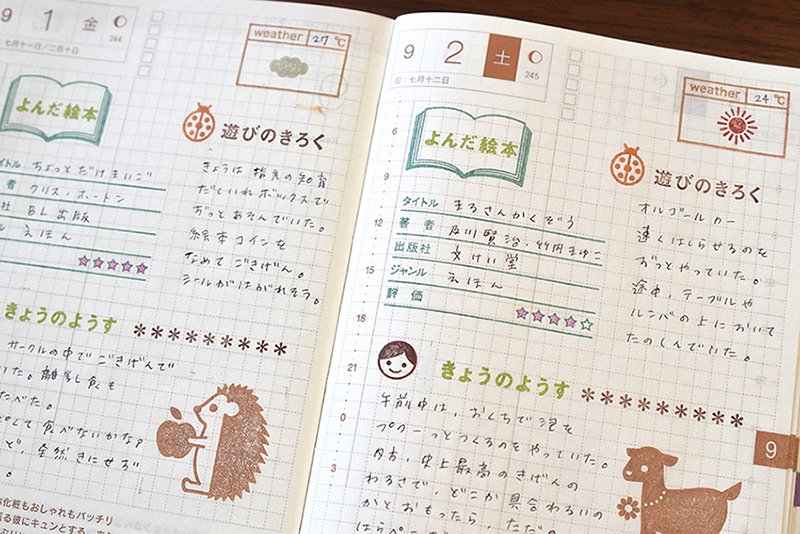 9 1 金
244
七月十一日／二百十日
weather 27 ℃
よんだ絵本
遊びのきろく
タイトル ちょっとだけまいご
者 クリス・ホートン
社 BL出版
ル えほん
きょうは 指先の知育
だしいれボックスで
ずっとあそんでいた。
絵本コインを
なめてごきげん。
シールがはがれそう。
きょうのようす
サークルの中でごきげんで
いた。離乳食も
たべた。
して食べないかな?
ど、全然きにせず
。
化粧もおしゃれもバッチリ
る彼にキュンとする。
9 2 土
245
旧：七月十二日
weather 24 ℃
6
9
12
15
18
21
0
3
よんだ絵本
遊びのきろく
タイトル まるさんかくぞう
著者 及川賢治、竹内まゆこ
出版社 文けい堂
ジャンル えほん
評価
オルゴールカー
速くはしらせるのを
ずっとやっていた。
途中、テーブルや
ルンバの上において
たのしんでいた。
きょうのようす
午前中は、おくちで泡を
プクーっとつくるのをやっていた。
内右、史上最高のきげんの
わるさで、どこか具合わるいの
かとおもったら、ただの
はらペこ
9